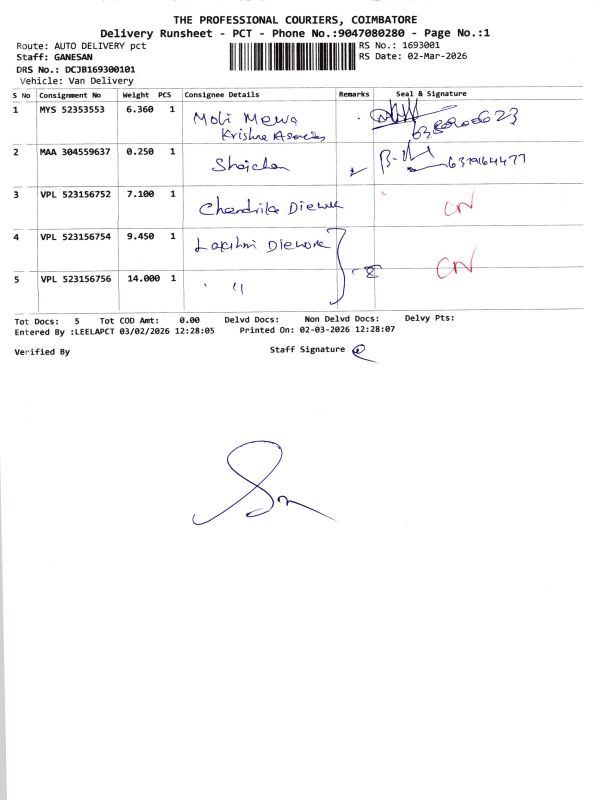 THE PROFESSIONAL COURIERS, COIMBATORE
Delivery Runsheet - PCT - Phone No.:9047080280 - Page No.:1
Route: AUTO DELIVERY pct RS No.: 1693001
Staff: GANESAN RS Date: 02-Mar-2026
DRS No.: DCJB169300101
Vehicle: Van Delivery
S No Consignment No Weight PCS Consignee Details Remarks Seal & Signature
1 MYS 52353553 6.360 1 Moti Mewa
Krishna
2 MAA 304559637 0.250 1 6379164477
3 VPL 523156752 7.100 1 Chandrika CN
4 VPL 523156754 9.450 1 Lakshmi CN
5 VPL 523156756 14.000 1 "
Tot Docs: 5 Tot COD Amt: 0.00 Delvd Docs: Non Delvd Docs: Delvy Pts:
Entered By :LEELAPCT 03/02/2026 12:28:05 Printed On: 02-03-2026 12:28:07
Verified By Staff Signature